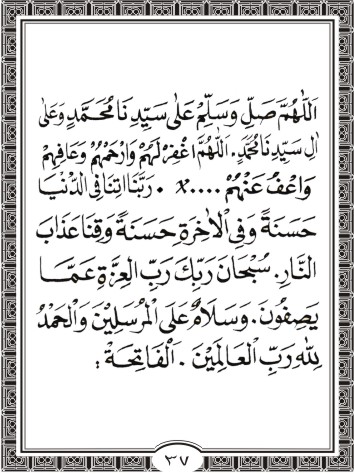 اَللّٰهُمَّ صَلِّ وَسَلِّمْ عَلٰى سَيِّدِنَا مُحَمَّدٍ وَعَلٰى
اٰلِ سَيِّدِنَا مُحَمَّدٍ. اَللّٰهُمَّ اغْفِرْ لَهُمْ وَارْحَمْهُمْ وَعَافِهِمْ
وَاعْفُ عَنْهُمْ ....x . رَبَّنَا اٰتِنَا فِى الدُّنْيَا
حَسَنَةً وَفِى الْاٰخِرَةِ حَسَنَةً وَقِنَا عَذَابَ
النَّارِ. سُبْحَانَ رَبِّكَ رَبِّ الْعِزَّةِ عَمَّا
يَصِفُوْنَ. وَسَلَامٌ عَلَى الْمُرْسَلِيْنَ وَالْحَمْدُ
لِلّٰهِ رَبِّ الْعَالَمِيْنَ. اَلْفَاتِحَةْ :
٣٧